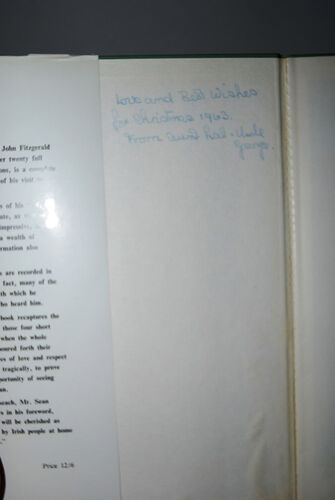 John Fitzgerald
er twenty full
ons, is a complete
of his visit
s of his
ate, as
impressive,
a wealth of
rmation also
s are recorded in
fact, many of the
th which he
ho heard him.
book recaptures the
those four short
when the whole
oured forth their
es of love and respect
tragically, to prove
portunity of seeing
an.
each, Mr. Sean
s in his foreword,
will be cherished as
by Irish people at home
."
Price 12/6
Love and Best Wishes
for Christmas 1963.
From Aunt & Uncle